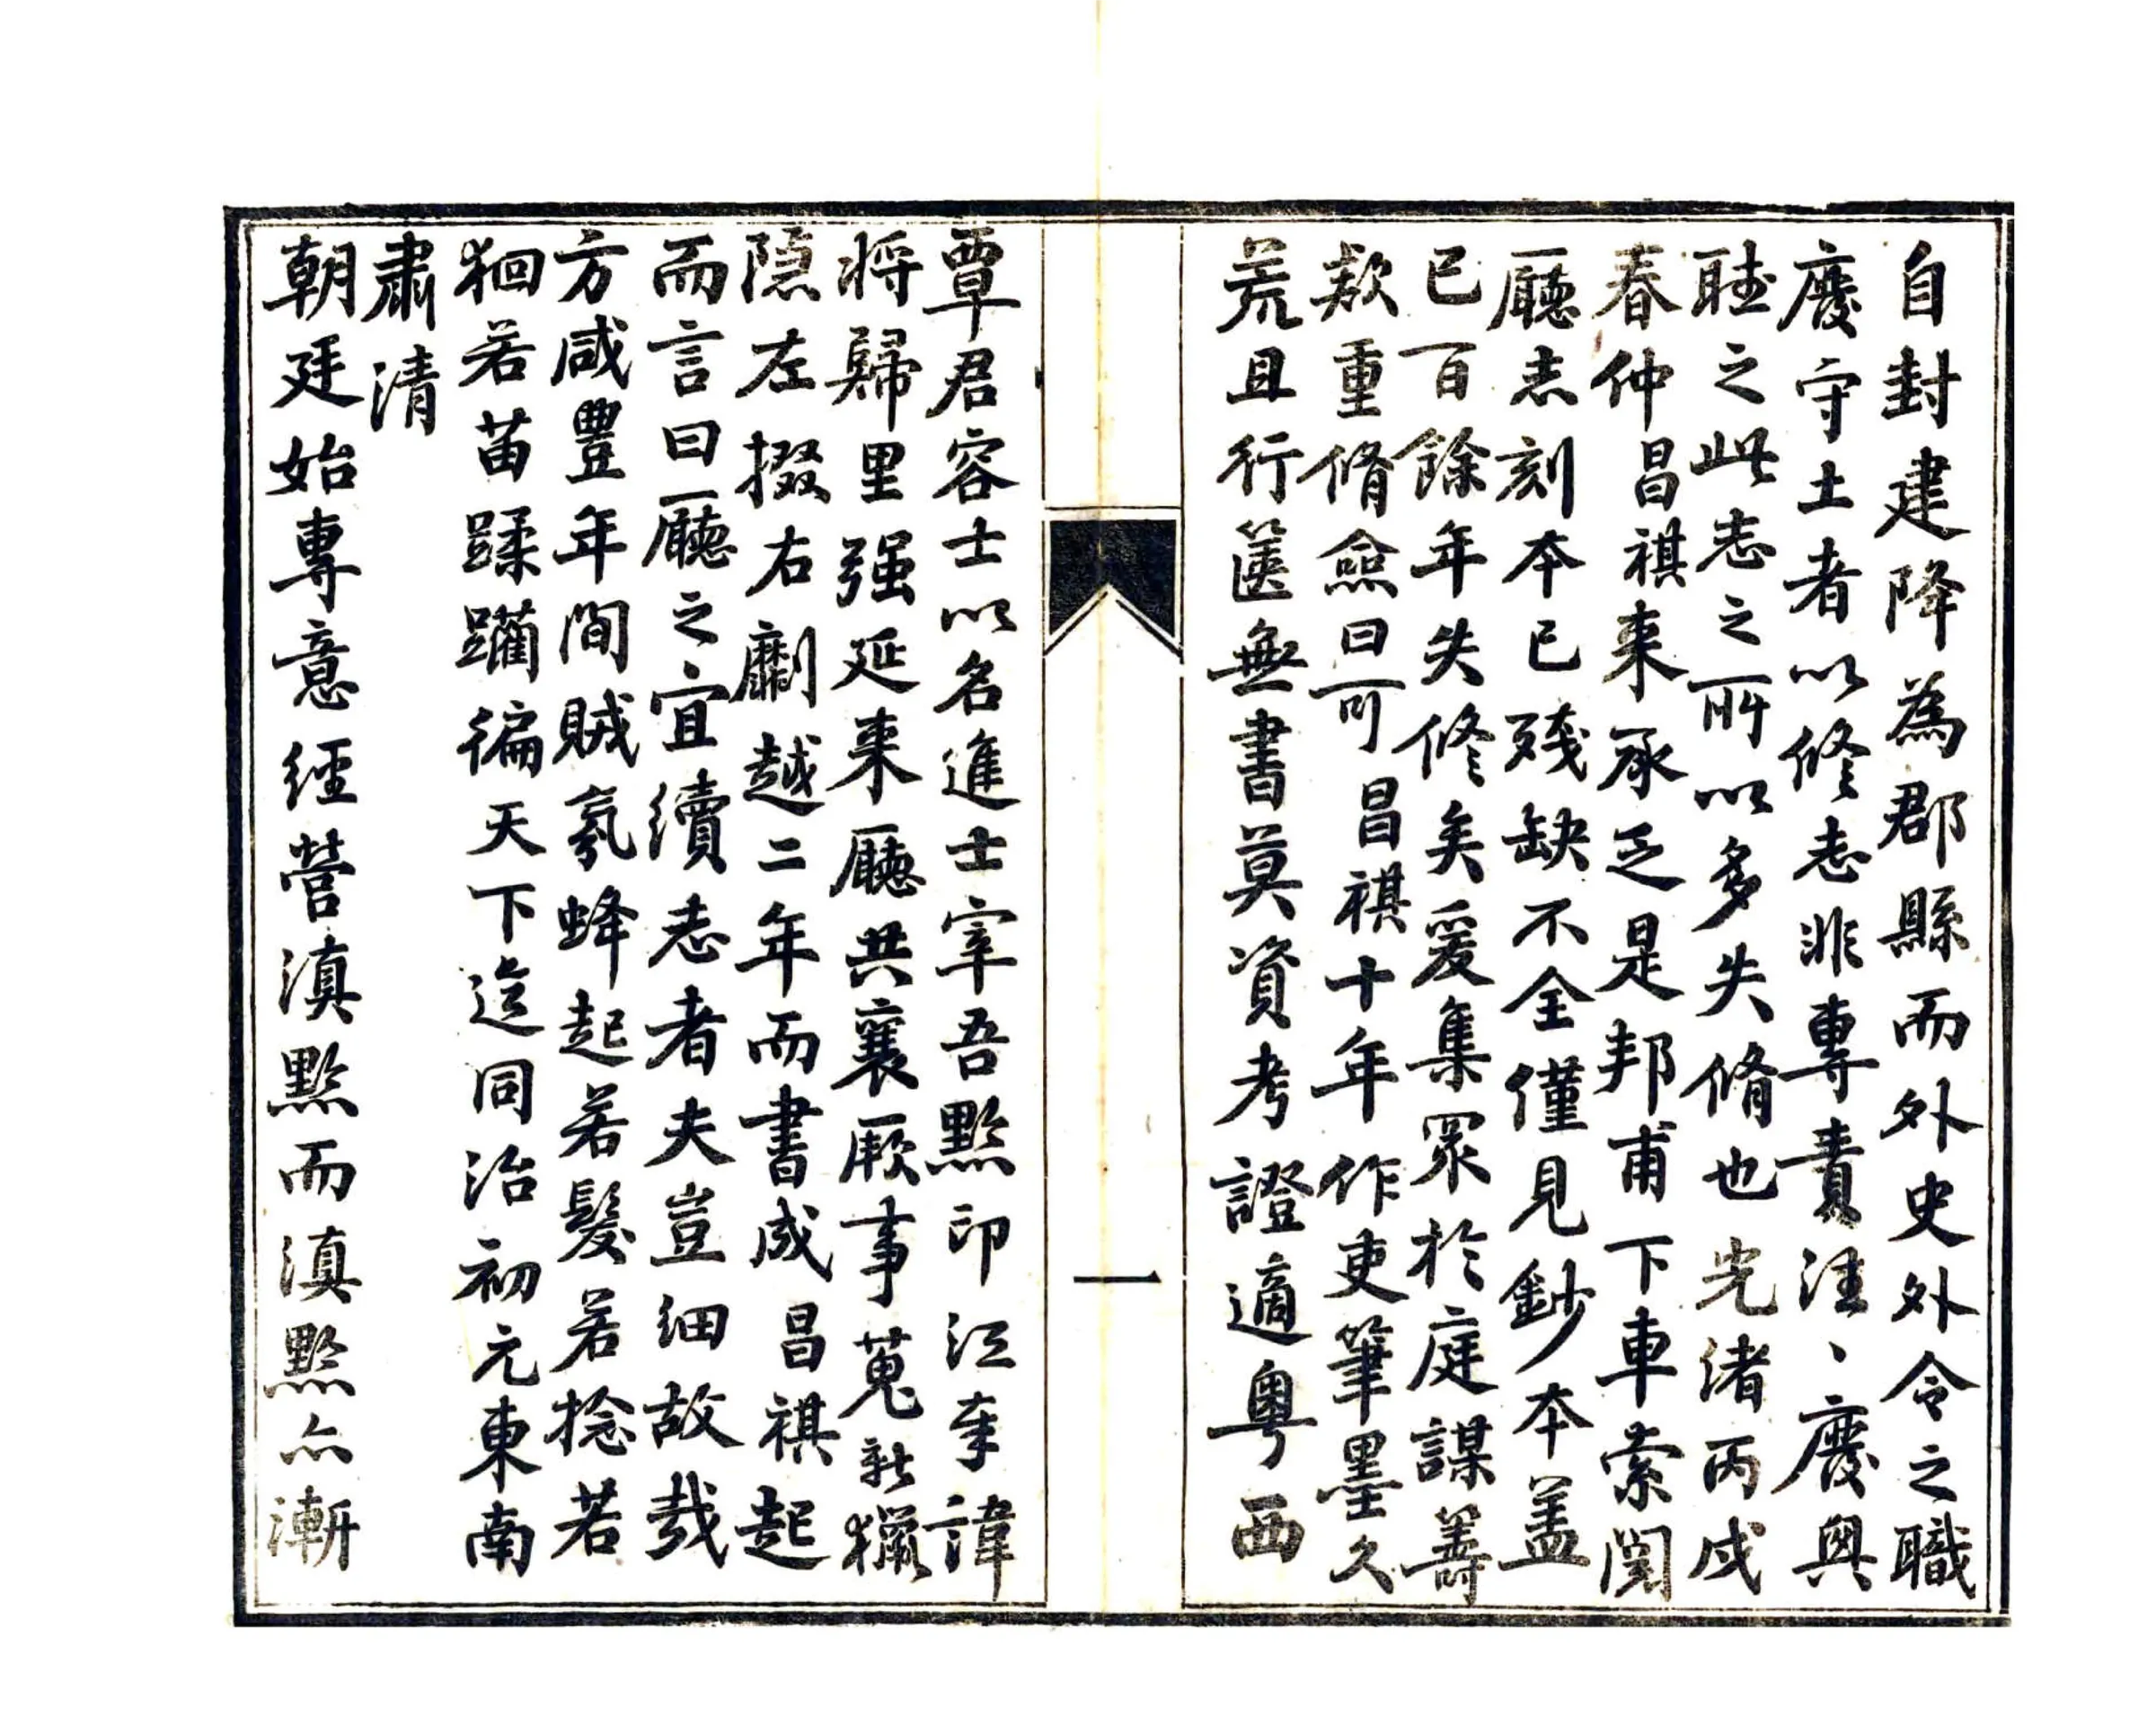 自封建降為郡縣而外史外令之職
廢守土者以修志非專責注、廢與
睦之此志之所以多失脩也光緒丙戌
春仲昌祺來承乏是邦甫下車索閱
廳志刻本已殘缺不全僅見鈔本蓋
已百餘年失修矣爰集眾於庭謀籌
欵重脩僉曰可昌祺十年作吏筆墨久
荒且行篋無書莫資考證適粵西
一
覃君容士以名進士宰吾黔印江奉諱
將歸里强延来廳共襄厥事蒐新獵
隐左掇右劘越二年而書成昌祺起
而言曰廳之宜續志者夫豈细故哉
方咸豐年間賊氛蜂起若髮若捻若
狪若苗蹂躪徧天下迄同治初元東南
肅清
朝廷始專意經營滇黔而滇黔亦漸